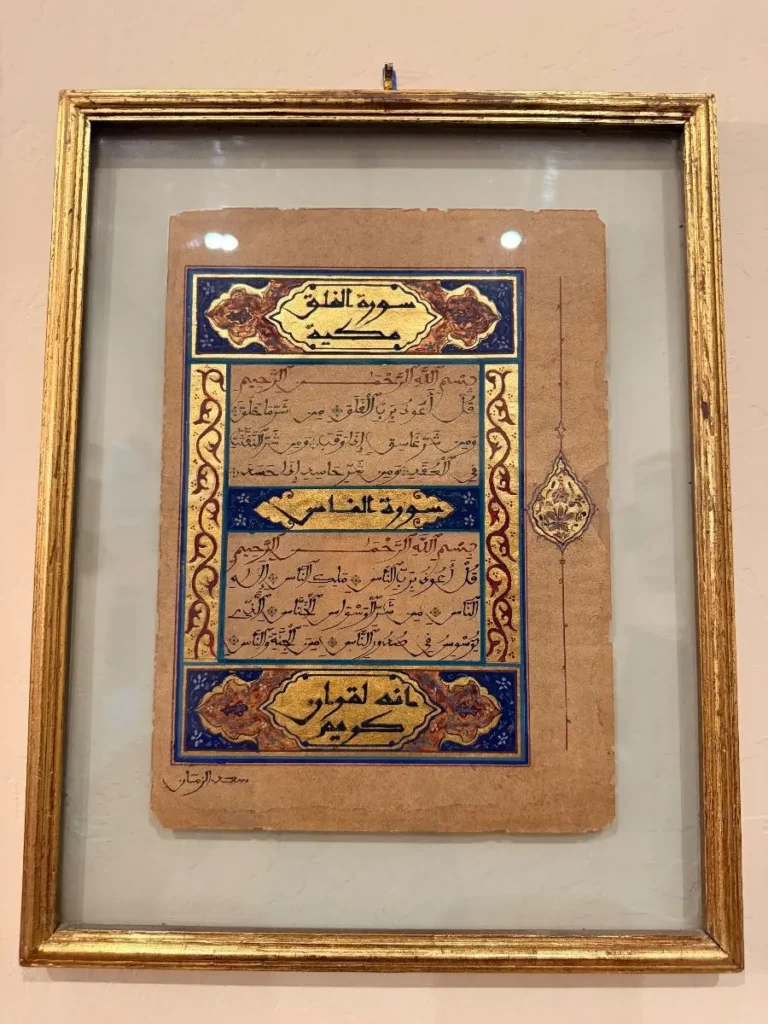 سورة الفلق
مكية
بِسْمِ اللَّهِ الرَّحْمَٰنِ الرَّحِيمِ
قُلْ أَعُوذُ بِرَبِّ الْفَلَقِ مِن شَرِّ مَا خَلَقَ
وَمِن شَرِّ غَاسِقٍ إِذَا وَقَبَ وَمِن شَرِّ النَّفَّٰثَٰتِ
فِي الْعُقَدِ وَمِن شَرِّ حَاسِدٍ إِذَا حَسَدَ
سورة الناس
بِسْمِ اللَّهِ الرَّحْمَٰنِ الرَّحِيمِ
قُلْ أَعُوذُ بِرَبِّ النَّاسِ مَلِكِ النَّاسِ إِلَٰهِ
النَّاسِ مِن شَرِّ الْوَسْوَاسِ الْخَنَّاسِ الَّذِي
يُوَسْوِسُ فِي صُدُورِ النَّاسِ مِنَ الْجِنَّةِ وَالنَّاسِ
انه لقران
كريم